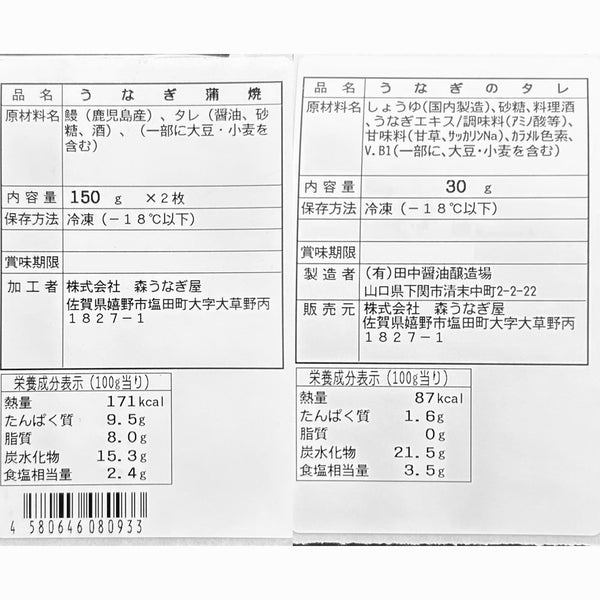 品名 うなぎ蒲焼
原材料名 鰻（鹿児島産）、タレ（醤油、砂
糖、酒）、（一部に大豆・小麦を
含む）
内容量 150 g ×2枚
保存方法 冷凍（－１８℃以下）
賞味期限
加工者 株式会社 森うなぎ屋
佐賀県嬉野市塩田町大字大草野丙
１８２７－１
栄養成分表示（100g当り）
熱量 171kcal
たんぱく質 9.5g
脂質 8.0g
炭水化物 15.3g
食塩相当量 2.4g
4 580646 080933
品名 うなぎのタレ
原材料名 しょうゆ(国内製造)、砂糖、料理酒
、うなぎエキス/調味料(アミノ酸等)、
甘味料(甘草、サッカリンNa)、カラメル色素、
V.B1(一部に、大豆・小麦を含む)
内容量 30 g
保存方法 冷凍（－１８℃以下）
賞味期限
製造者 (有)田中醤油醸造場
山口県下関市清末中町2-2-22
販売元 株式会社 森うなぎ屋
佐賀県嬉野市塩田町大字大草野丙
１８２７－１
栄養成分表示（100g当り）
熱量 87kcal
たんぱく質 1.6g
脂質 0g
炭水化物 21.5g
食塩相当量 3.5g